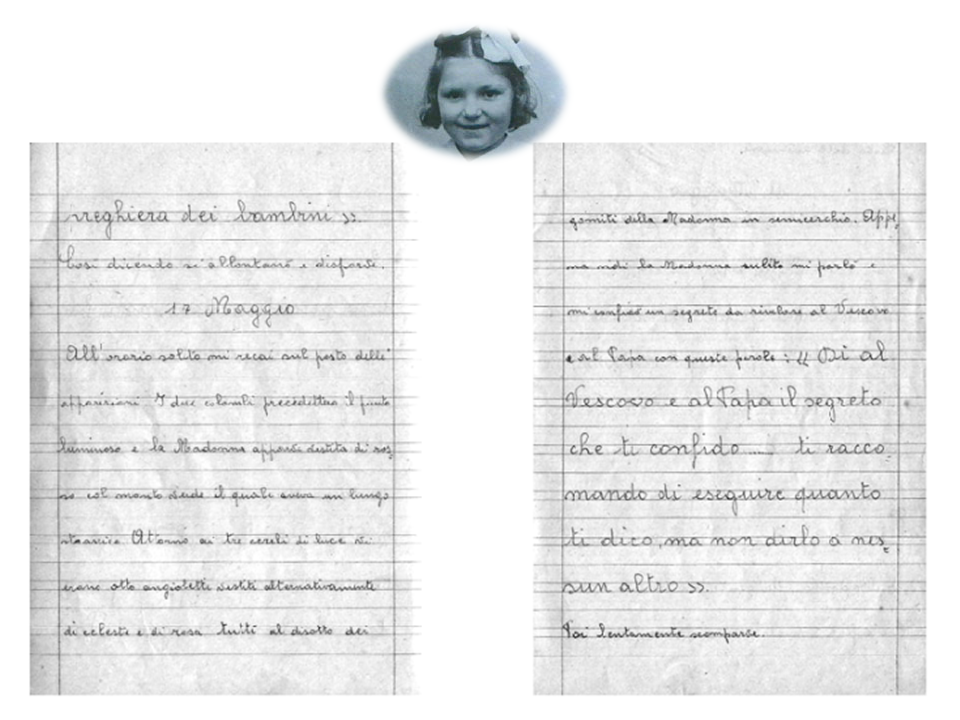 preghiera dei bambini ».
Così dicendo si allontanò e disparve.
17 Maggio
All'orario solito mi recai sul posto delle
apparizioni I due colombi precedettero il punto
luminoso e la Madonna apparve vestita di ros,
so col manto verde il quale aveva un lungo
strascico Attorno ai tre cerchi di luce vi
erano otto angioletti vestiti alternativamente
di celeste e di rosa tutti al disotto dei
gomiti della Madonna in semicerchio. Appe,
na vidi la Madonna subito mi parlò e
mi confidò un segreto da rivelare al Vescovo
e al Papa con queste parole : « Di al
Vescovo e al Papa il segreto
che ti confido .... ti racco,
mando di eseguire quanto
ti dico, ma non dirlo a nes,
sun altro ».
Poi lentamente scomparve.